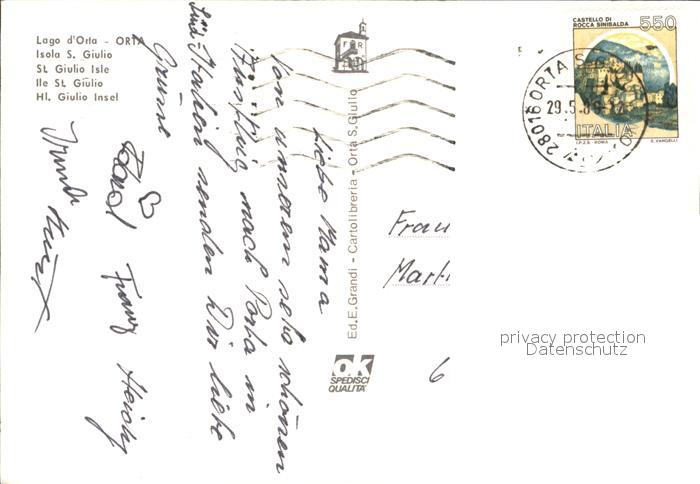 Lago d'Orta - ORTA
Isola S. Giulio
St. Giulio Isle
Ile St. Giulio
Hl. Giulio Insel
Liebe Mama
Von unserem sehr schönen
Ausflug nach Porta in
Süd-Italien senden Dir liebe
Grüsse
Franz Heidy
Ed. E. Grandi - Cartolibreria - Orta S. Giulio
ok
SPEDISCI
QUALITÀ
CASTELLO DI
ROCCA SINIBALDA
550
ITALIA
I.P.Z.S. - ROMA
E. VANGELLI
28016 ORTA S.
29.5.8
Frau
Marti
6
privacy protection
Datenschutz